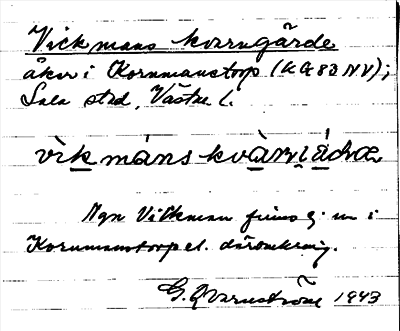 Vickmans kvarngärde
åker i Kornmanstorp (KG 82 NV);
Sala stad, Västm l.
vìkmánskvàrnjáḍɶ
Agn Vikman finns ej nu i
Kornmanstorp el. däromkring.
G. Qvarnström 1943